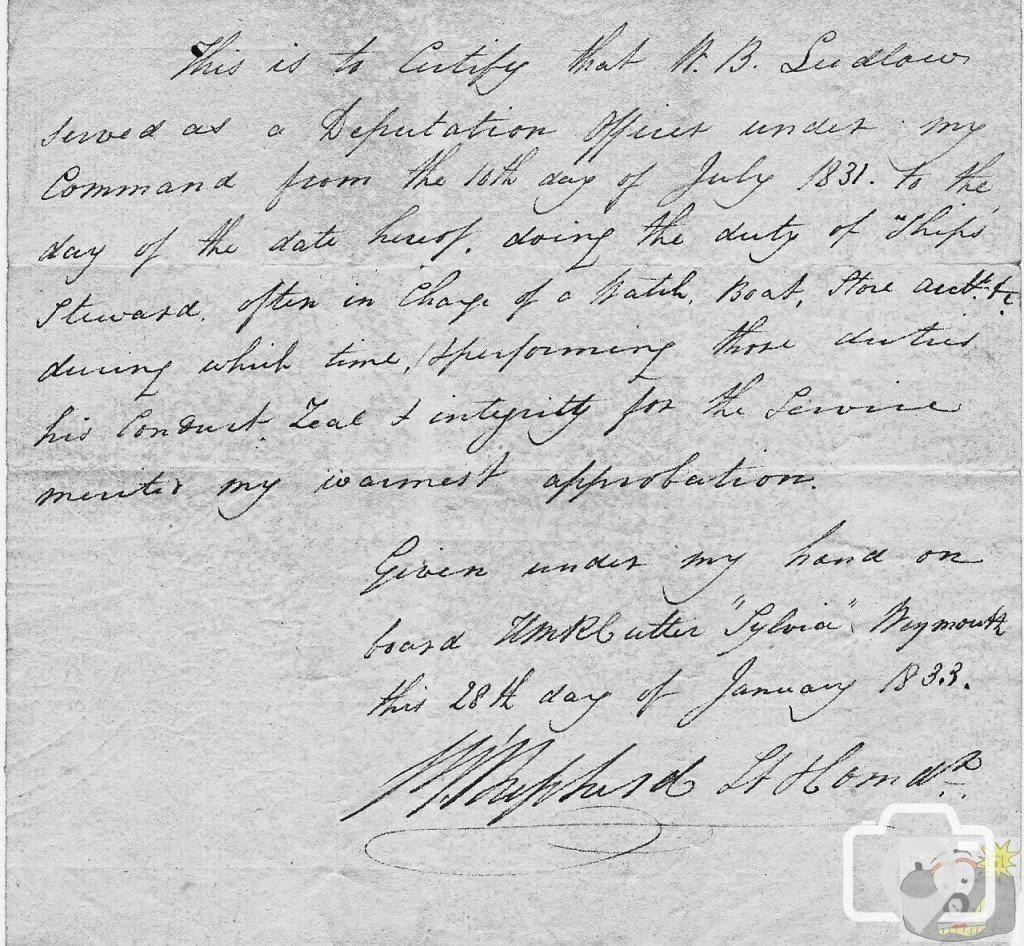 This is to Certify that W. B. Ludlow
served as a Deputation Officer under my
Command from the 10th day of July 1831. to the
day of the date hereof. doing the duty of "Ships
Steward. often in Charge of a Watch, Boat, Store acctts. &c
during which time, & performing those duties
his Conduct Zeal & integrity for the Service
merits my warmest approbation.
Given under my hand on
board HMRCutter "Sylvia" Weymouth
this 28th day of January 1833.
Shepherd Lt & Comdr.